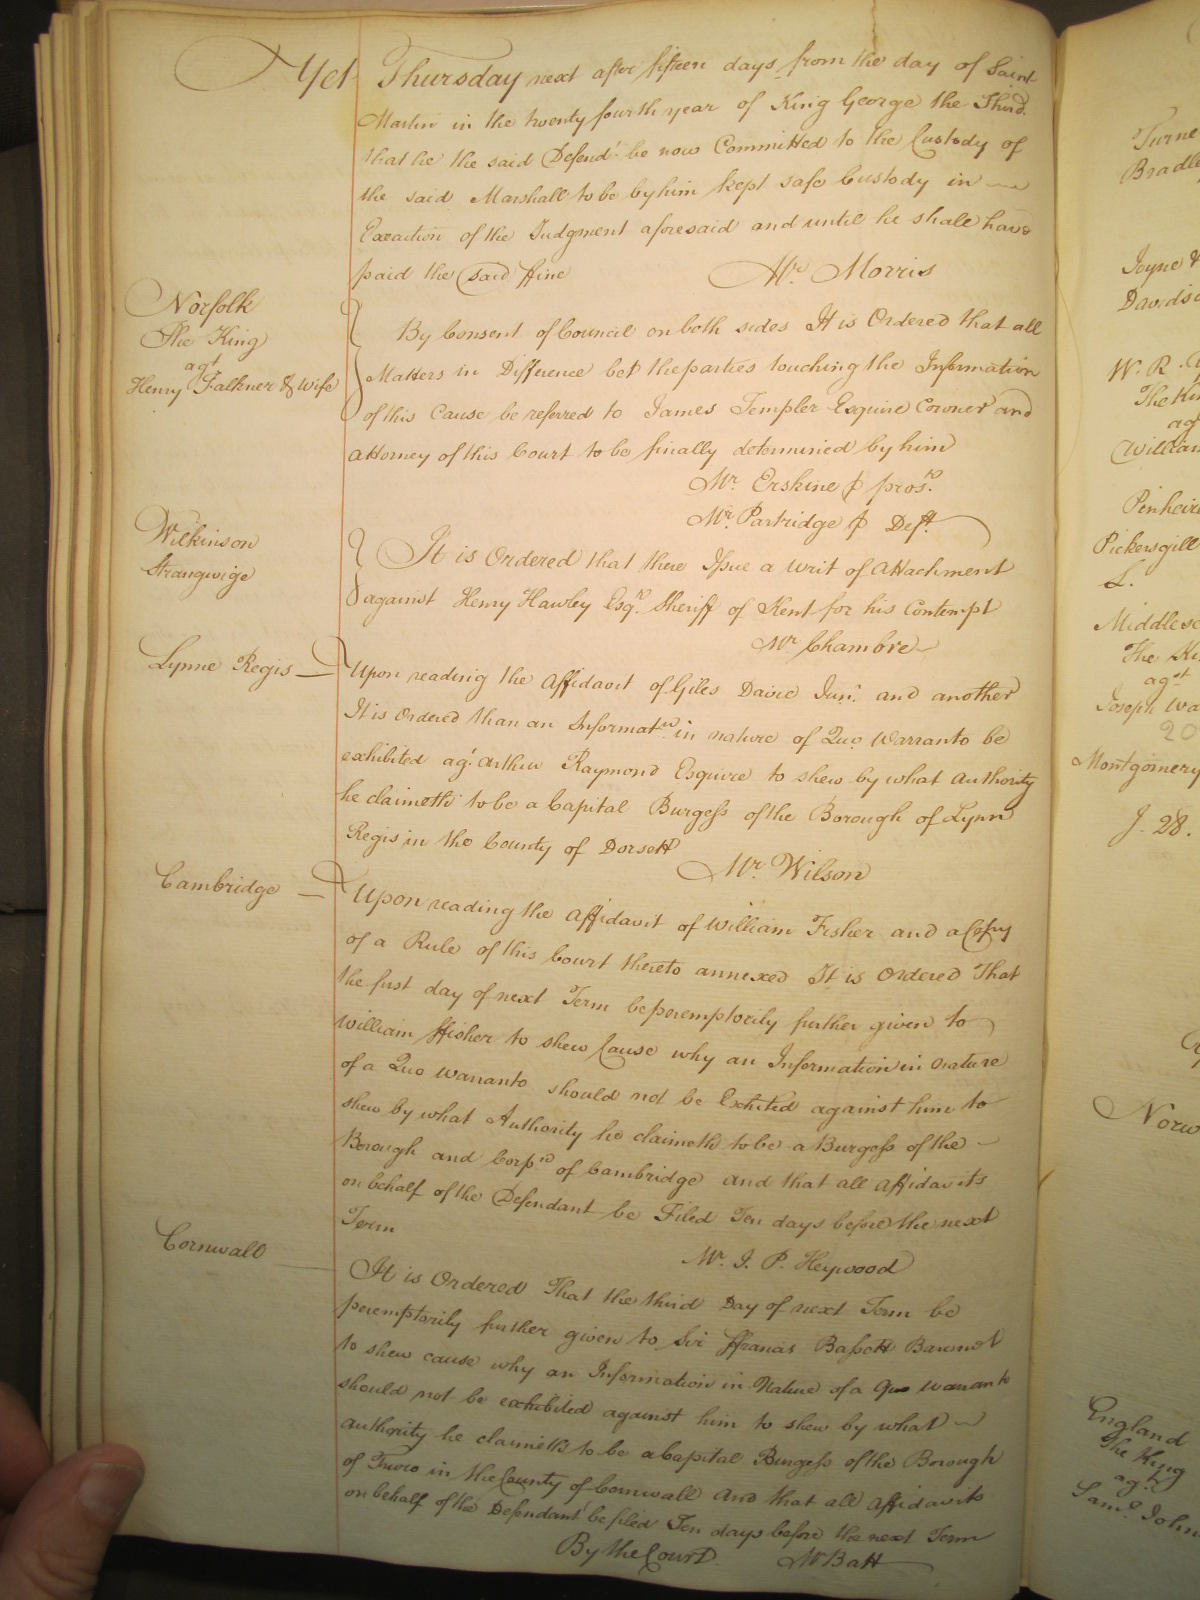 Yet Thursday next after fifteen days from the day of Saint
Martin in the twenty fourth year of King George the Third
that he the said Defendt be now Committed to the Custody of
the said Marshall to be by him kept safe Custody in
Execution of the Judgment aforesaid and until he shall have
paid the said ffine Mr. Morris
Norfolk
The King
agt
Henry Falkner & Wife
By Consent of Council on both sides It is Ordered that all
Matters in Difference bet the parties touching the Information
of this Cause be referred to James Templer Esquire Coroner and
attorney of this Court to be finally determined by him
Mr. Erskine p pros.r
Mr. Partridge p Deft.
Wilkinson
Strangwige
It is Ordered that there Issue a Writ of Attachment
against Henry Hawley Esqr. Sheriff of Kent for his Contempt
Mr Chambre
Lynne Regis
Upon reading the Affidavit of Giles Davie Junr. and another
It is Ordered than an Informatn. in nature of Quo Warranto be
exhibited agt. Arthur Raymond Esquire to shew by what authority
he claimeth to be a Capital Burgess of the Borough of Lynn
Regis in the County of Dorsett
Mr. Wilson
Cambridge
Upon reading the Affidavit of William Fisher and a Copy
of a Rule of this Court thereto annexed It is Ordered That
the first day of next Term be peremptorily further given to
William ffisher to shew Cause why an Information in nature
of a Quo Warranto should not be Exhited against him to
shew by what Authority he claimeth to be a Burgess of the
Borough and Corpn of Cambridge and that all Affidavits
on behalf of the Defendant be Filed Ten days before the next
Term
Mr. J. P. Heywood
Cornwall
It is Ordered That the third Day of next Term be
peremptorily further given to Sir ffrancis Bassett Baronet
to shew cause why an Information in Nature of a Quo Warranto
should not be exhibited against him to shew by what
authority he claimeth to be a Capital Burgess of the Borough
of Truro in the County of Cornwall and that all Affidavits
on behalf of the Defendant be filed Ten days before the next Term
By the Court Mr Batt
Turne
Bradle
Joyne &
Davids
W. R.
The Ki
agt
William
Pinheir
Pickersgill
L.
Middlese
The Ki
agst
Joseph Wa
20
Montgomery
J. 28.
Norw
England
The King
agt
Saml. John